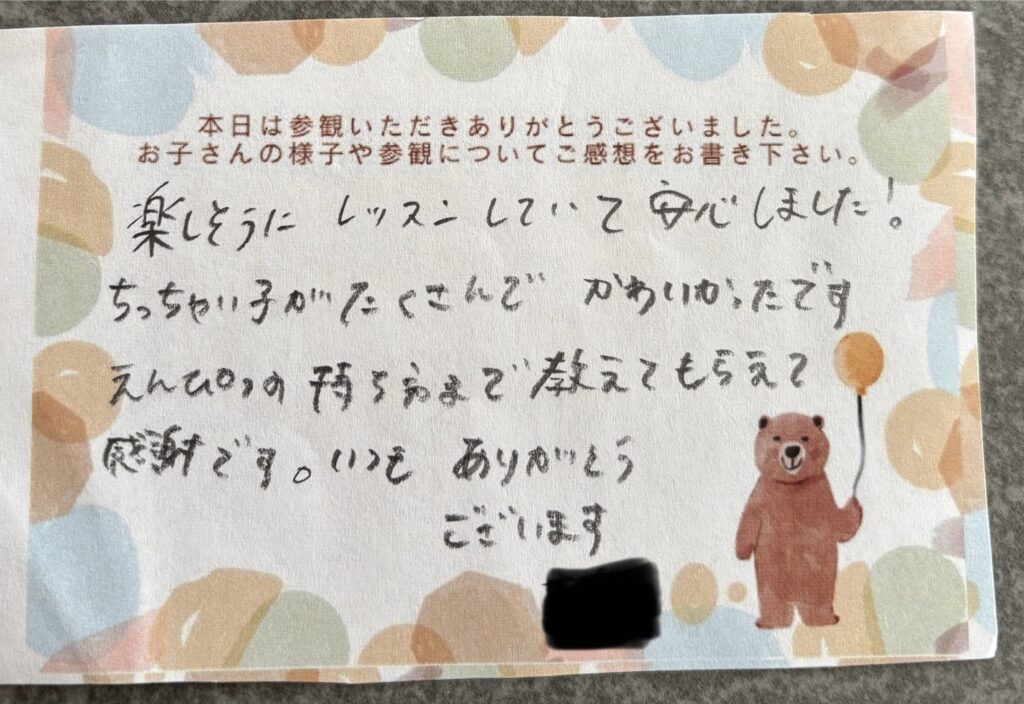 本日は参観いただきありがとうございました。
お子さんの様子や参観についてご感想をお書き下さい。
楽しそうに レッスンしていて 安心しました!。
ちっちゃい子がたくさんで かわいかったです
えんぴつの 持ち方まで 教えてもらえて
感謝です。いつも ありがとう
ございます